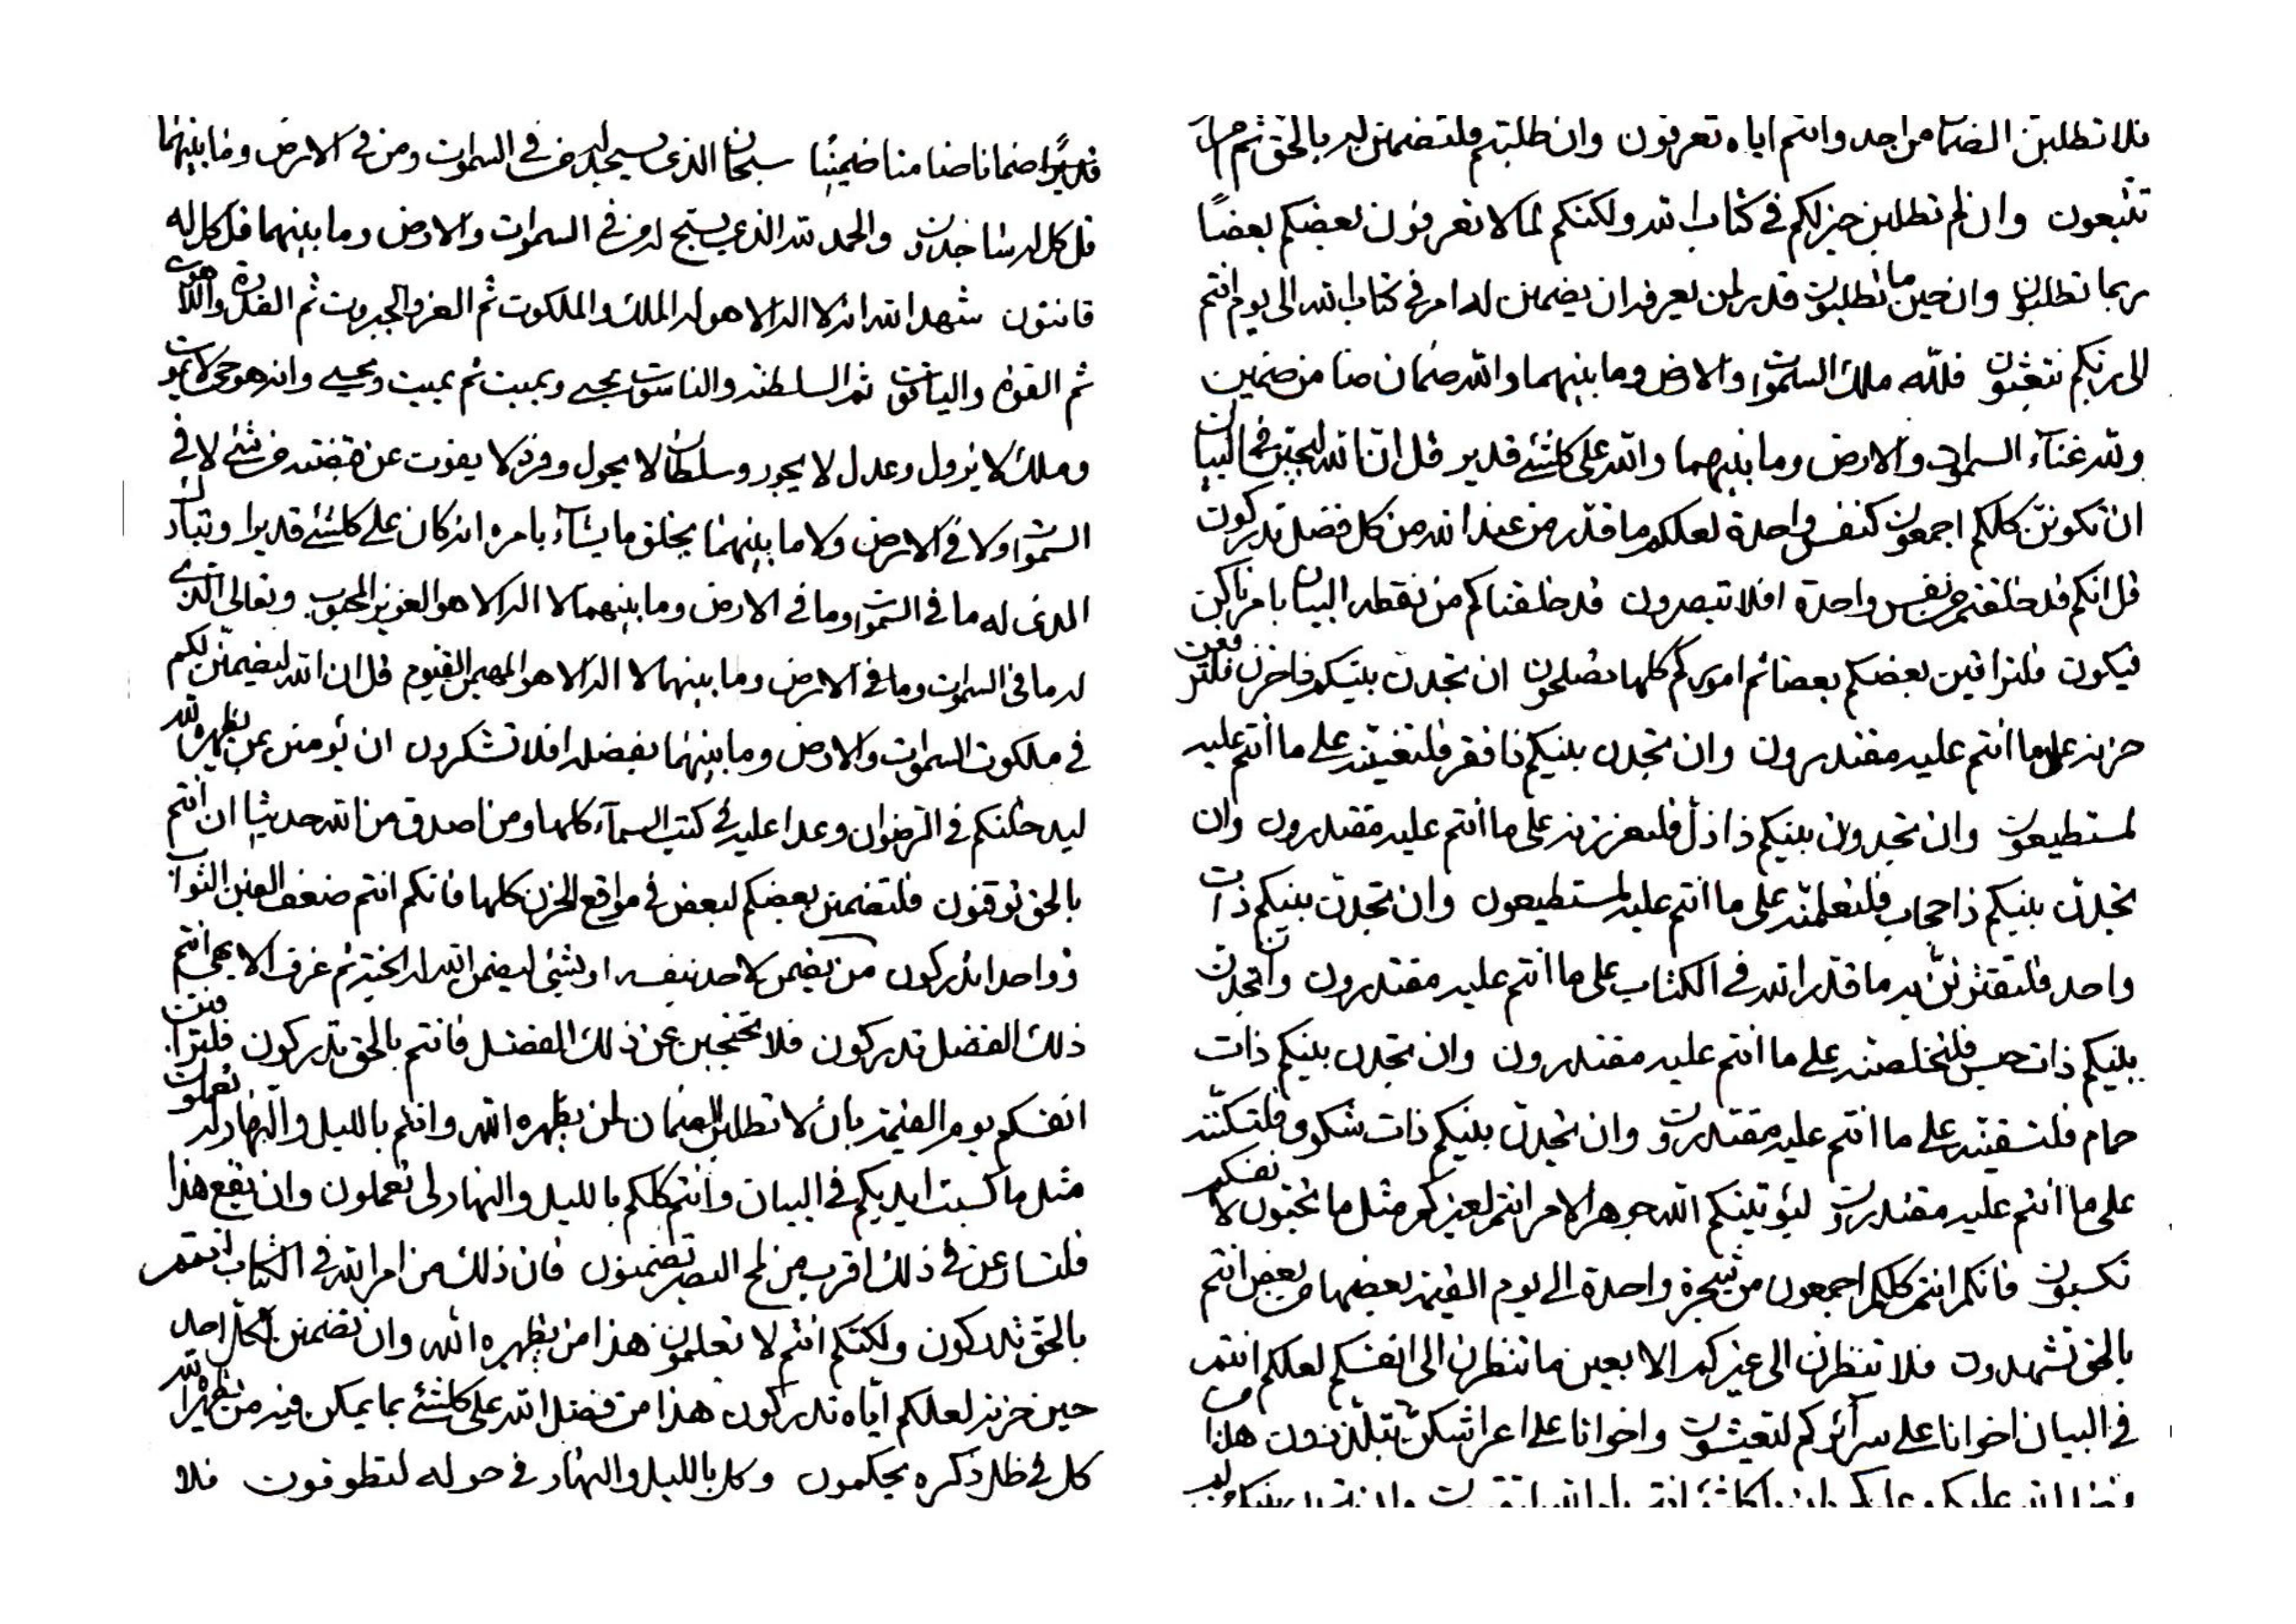 قديرا ضمانا ضامنا ضمينا سبحان الذي يسجد له من في السموات ومن في الارض وما بينهما
قل كل له ساجدون والحمد لله الذي يسبح له من في السموات والارض وما بينهما قل كل له
قانتون شهد الله انه لا اله الا هو له الملك والملكوت ثم العز والجبروت ثم القدرة واللاهوت
ثم القوة والياقوت ثم السلطنة والناسوت يحيي ويميت ثم يميت ويحيي وانه هو حي لا يموت
وملك لا يزول وعدل لا يجور وسلطان لا يحول وفرد لا يفوت عن قبضته من شئ لا في
السموات ولا في الارض ولا ما بينهما يخلق ما يشآء بامره انه كان على كلشئ قديرا وتبارك
الذي له ما في السموات وما في الارض وما بينهما لا اله الا هو العزيز المحبوب وتعالى الذي
له ما في السموات وما في الارض وما بينهما لا اله الا هو المهيمن القيوم قل ان الله ليضمنن لكم
في ملكوت السموات والارض وما بينهما بفضله افلا تشكرون ان تؤمنن بمن يظهره الله
ليدخلنكم في الرضوان وعدا عليه في كتب السمآء كلها ومن اصدق من الله حديثا ان انتم
بالحق توقنون فلتضمنن بعضكم لبعض في مواقع الحزن كلها فانكم انتم ضعف الفين الثواب
ذو واحد اتدركون من يضمن لاحد نفسه او بشئ ليضمن الله له الجنة ثم غرف الابهى انتم
ذلك الفضل تدركون فلا تحتجبن عن ذلك الفضل فانتم بالحق تدركون فلتراقبن
انفسكم يوم القيمة بان لا تطلبن الضمان لمن يظهره الله وانتم بالليل والنهار له تعملون
مثل ما كسبت ايديكم في البيان وانتم كلكم بالليل والنهار لي تعملون وان يقع هذا
فلتسارعن في ذلك اقرب من لمح البصر تضمنون فان ذلك من امر الله في الكتاب انتم
بالحق تدركون ولكنكم انتم لا تعلمون هذا من يظهره الله وان تضمنن لكل احد
حين حزنه لعلكم اياه تدركون هذا من فضل الله على كلشئ بما يمكن فيه من يظهره الله
كل في ظل ذكره يحكمون وكل بالليل والنهار في حوله لتطوفون فلا
فلا تطلبن الضمان من احد وانتم اياه تعرفون وان طلبتم فلتضمنن له بالحق ثم
تتبعون وان لم تطلبن خير لكم في كتاب الله ولكنكم لما لا تعرفون بعضكم بعضا
ربما تطلبون وان حين ما تطلبون قدر لمن يعرفه ان يضمنن له امر في كتاب الله الى يوم انتم
الى ربكم تبعثون فلله ملك السموات والارض وما بينهما والله ضمان ضامن ضمين
ولله غنآء السموات والارض وما بينهما والله على كلشئ قدير قل انا لله لنحبن في البيان
ان تكونن كلكم اجمعون كنفس واحدة لعلكم ما قدر من عند الله من كل فضل تدركون
قل انكم قد خلقتم من نفس واحدة افلا تبصرون قد خلقناكم من نقطة البيان بامرنا كن
فيكون فلتراقبن بعضكم بعضا ثم اموركم كلها تصلحون ان تجدن بينكم ذا حزن فلترفعن
حزنه على ما انتم عليه مقتدرون وان تجدن بينكم ذا فقر فلتغنينه على ما انتم عليه
لمستطيعون وان تجدون بينكم ذا ذل فلتعززنه على ما انتم عليه مقتدرون وان
تجدن بينكم ذا حجاب فلتعلمنه على ما انتم عليه لمستطيعون وان تجدن بينكم ذات
واحد فلتقترنن به ما قدر الله في الكتاب على ما انتم عليه مقتدرون وان تجدن
بينكم ذات حبس فلتخلصنه على ما انتم عليه مقتدرون وان تجدن بينكم ذات
حمام فلتسقينه على ما انتم عليه مقتدرون وان تجدن بينكم ذات شكو فلتسكننه
على ما انتم عليه مقتدرون ليؤتينكم الله جوهر الامر انتم لغيركم مثل ما تحبون لانفسكم
تكسبون فانكم انتم كلكم اجمعون من شجرة واحدة الى يوم القيمة بعضها من بعض انتم
بالحق تشهدون فلا تنظرن الى غيركم الا بعين ما تنظرن الى انفسكم لعلكم انتم
في البيان اخوانا على سرآئركم لتعيشون واخوانا على اعراشكن تتلذذون هذا من
فضل الله عليكم وعليكم